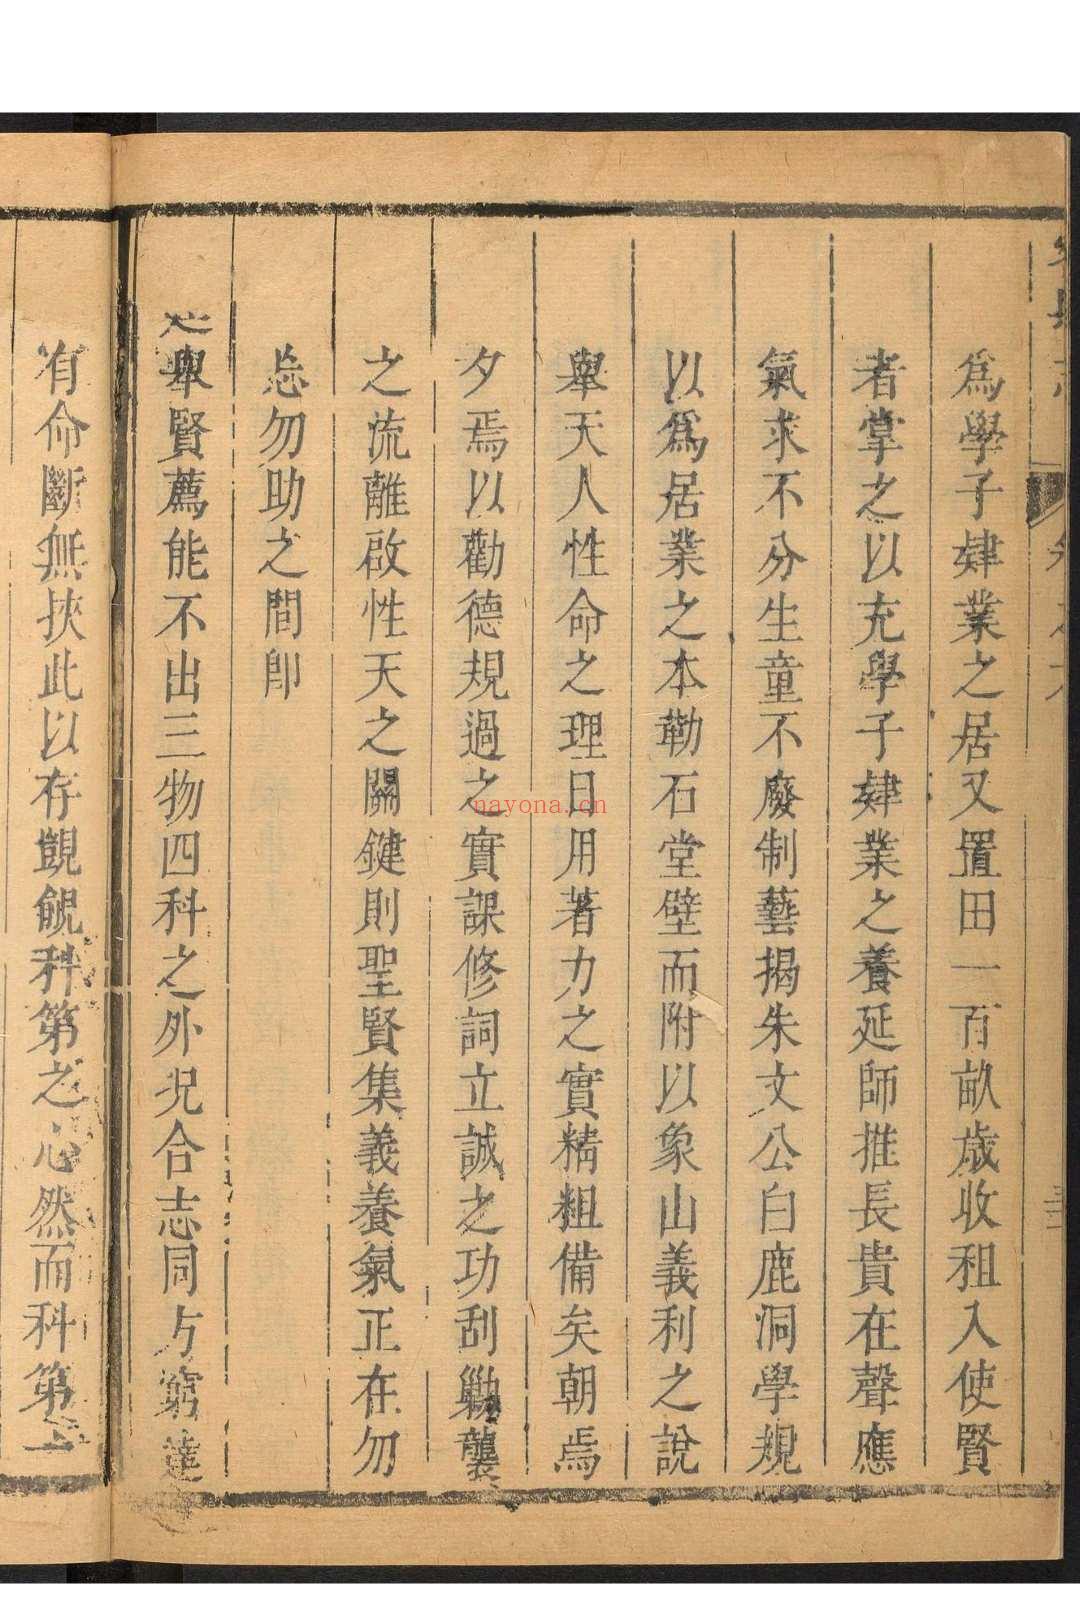 為學子肄業之居又置田一百畝歲收租入使賢
者掌之以充學子肄業之養延師推長貴在聲應
氣求不分生童不廢制藝揭朱文公白鹿洞學規
以為居業之本勒石堂壁而附以象山義利之說
舉天人性命之理日用著力之實精粗備矣朝焉
夕焉以勸德規過之實課修詞立誠之功刮勦襲
之流離啟性天之關鍵則聖賢集義養氣正在勿
忘勿助之間即
舉賢薦能不出三物四科之外况合志同方窮達
有命斷無挾此以存覬覦科第之心然而科第
nayona.cn